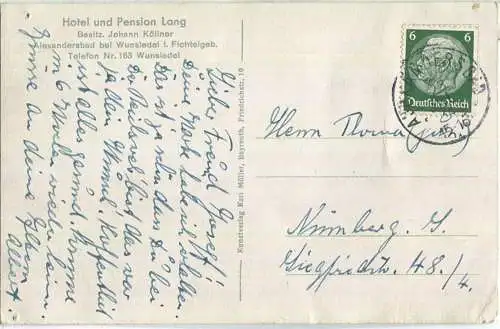 Hotel und Pension Lang
Besitz. Johann Köllner
Alexandersbad bei Wunsiedel i. Fichtelgeb.
Telefon Nr. 163 Wunsiedel
Lieber Freund Josef!
Deine Karte habe erhalten.
Das ist ja schön das Du bei
der Reichei bist das war
ja dein Hoffentlich
ist alles gesund. Komme
in 6 Wochen wieder heim.
Grüsse an deine Eltern
Albert
Kunstverlag Karl Müller, Bayreuth, Friedrichstr. 10
6 6
Deutsches Reich
Herrn
Nürnberg. S.
Siegfriedstr. 48./4.